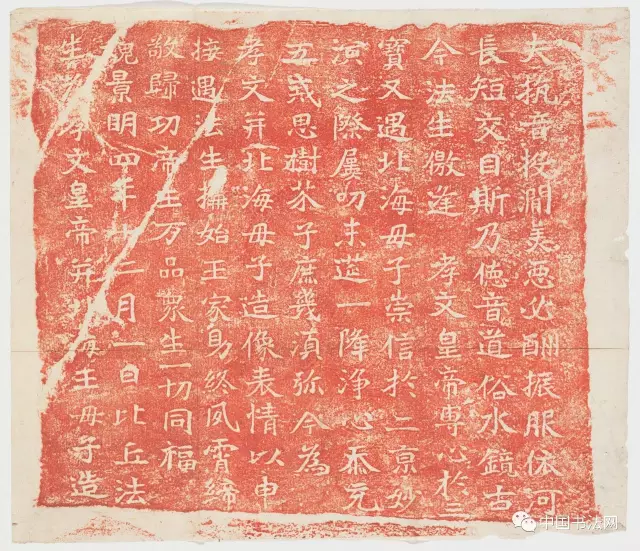 夫抗音投澗美惡必酬振服依河
長短交目斯乃德音道俗水鏡古
今法生儌逢 孝文皇帝專心於三
寶又遇北海母子崇信於二京妙
演之際屢叨末筵一降淨心忝充
五戒思樹芥子庶幾須彌今為
孝文并北海母子造像表情以申
接遇法生構始王家助終夙霄締
敬歸功帝王万品眾生一切同福
魏景明四年十二月一日比丘法
生為孝文皇帝并北海王母子造
中国书法网